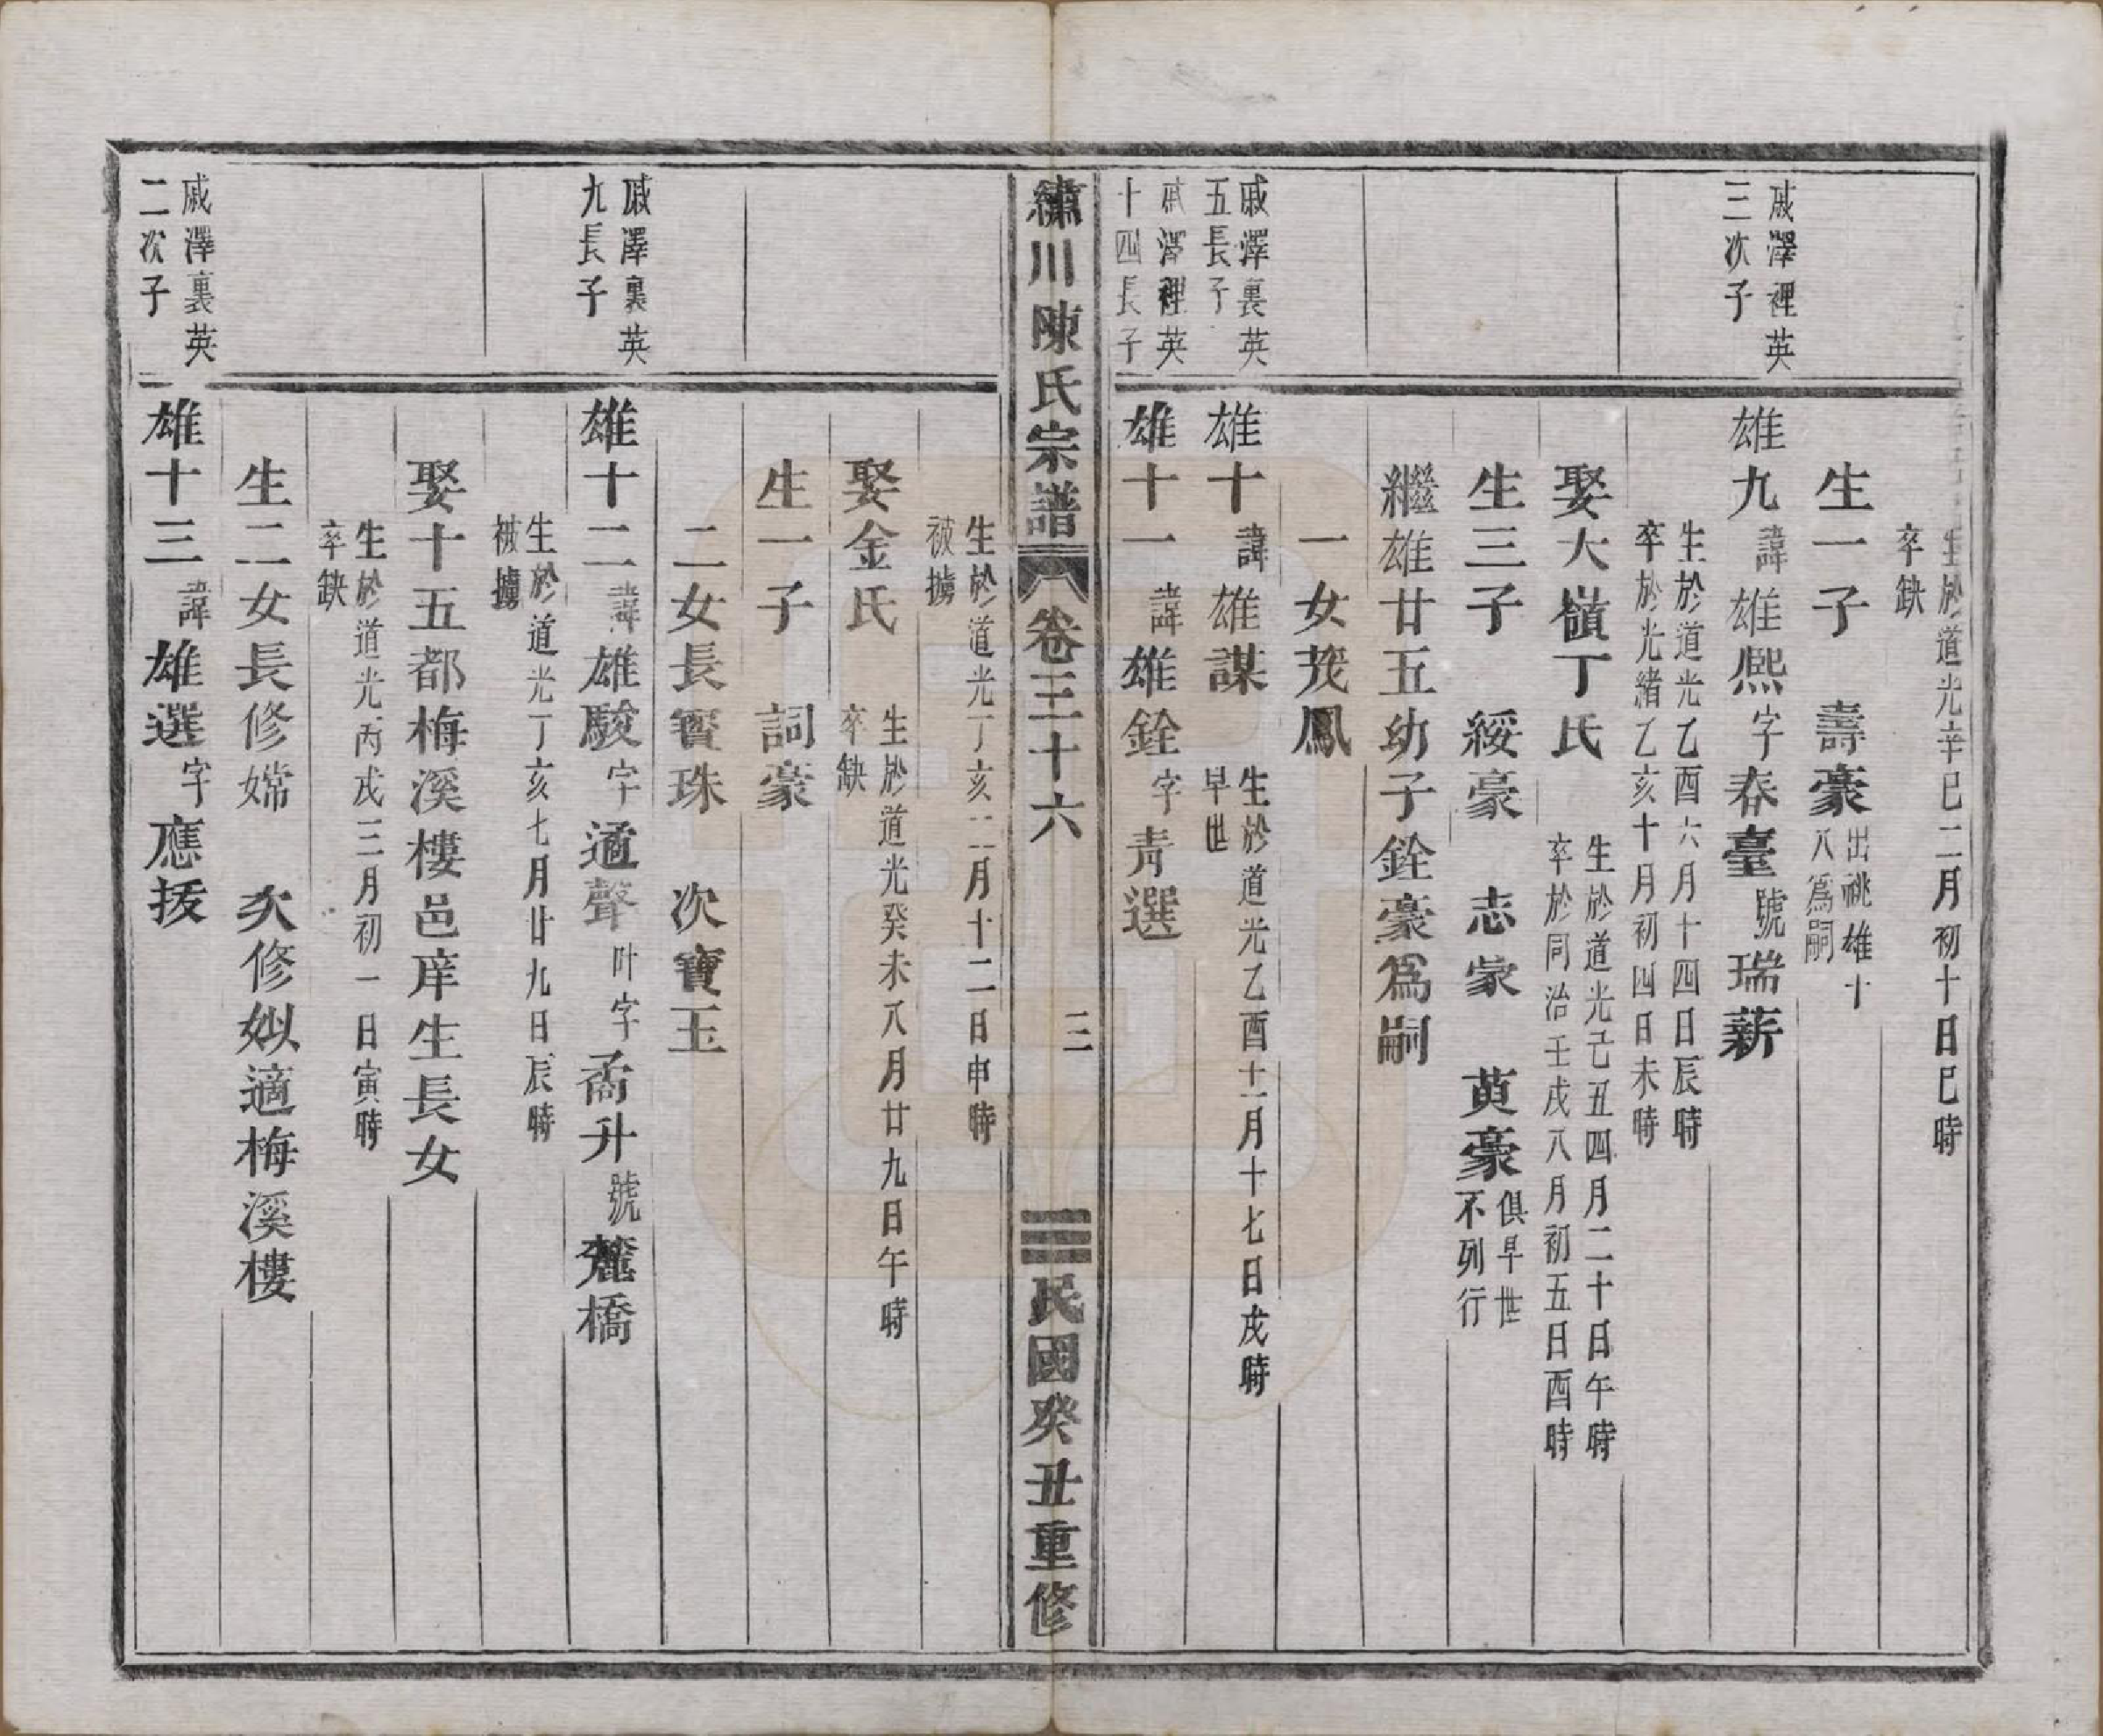 生於道光辛巳二月初十日巳時
卒缺
生一子 壽豪 出祧雄十
八爲嗣
戚澤裡英
三次子
雄九 諱 雄熙 字 春臺 號 瑞薪
生於道光乙酉六月十四日辰時
卒於光緒乙亥十月初四日未時
娶大嶺丁氏 生於道光己丑四月二十日午時
卒於同治壬戌八月初五日酉時
生三子 綏豪 志豪 萸豪 俱早世
不列行
繼雄廿五幼子銓豪爲嗣
一女茂鳳
戚澤裏英
五長子
雄十 諱 雄謀 生於道光乙酉十一月十七日戌時
早世
戚澤裡英
十四長子
雄十一 諱 雄銓 字 靑選
繡川陳氏宗譜 卷三十六 三 民國癸丑重修
生於道光丁亥二月十二日申時
被擄
娶金氏 生於道光癸未八月廿九日午時
卒缺
生一子 詞豪
二女長寶珠 次寶玉
戚澤裏英
九長子
雄十二 諱 雄駿 字 遹聲 叶字 喬升 號 麓橋
生於道光丁亥七月廿九日辰時
被擄
娶十五都梅溪樓邑庠生長女
生於道光丙戌三月初一日寅時
卒缺
生二女長修嫦 次修姒適梅溪樓
戚澤裏英
二次子
雄十三 諱 雄選 字 應拔